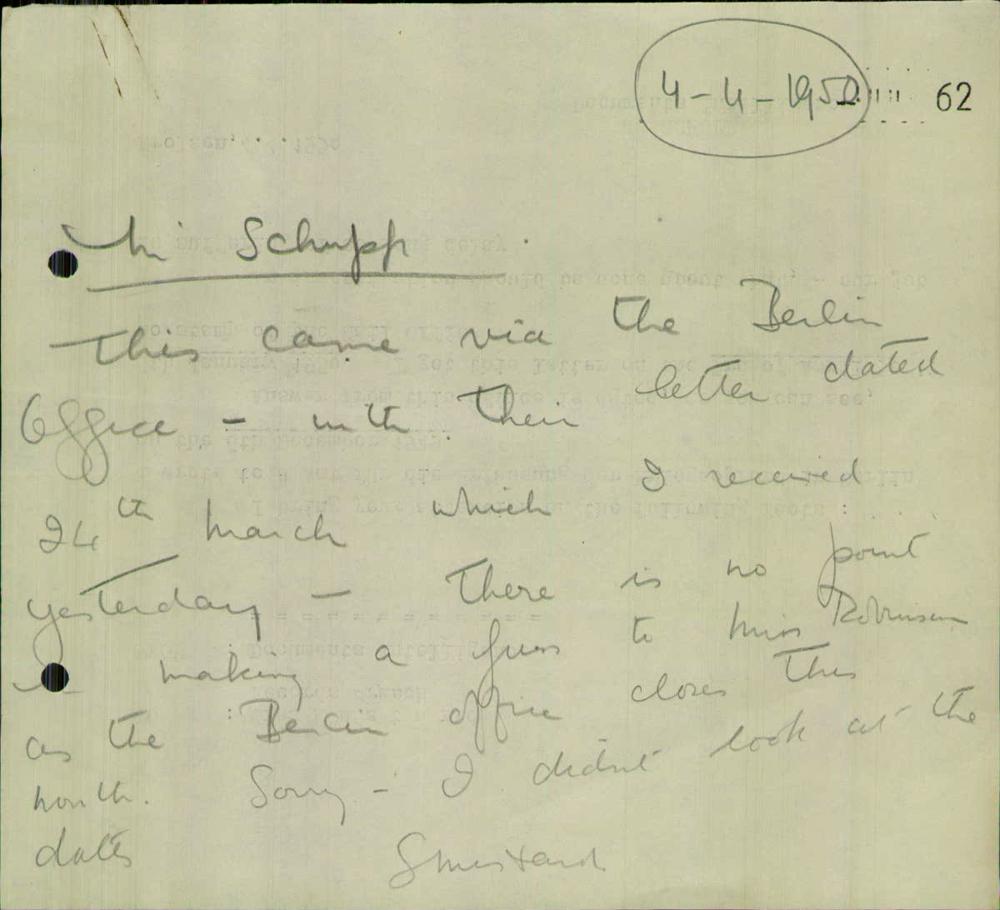 4-4-1950 62
Mr Schupp
This came via the Berlin
Office - with their letter dated
24th March which I received
yesterday - There is no point
in making a fuss to Miss Robinson
as the Berlin office closes this
month. Sorry - I didn't look at the
dates